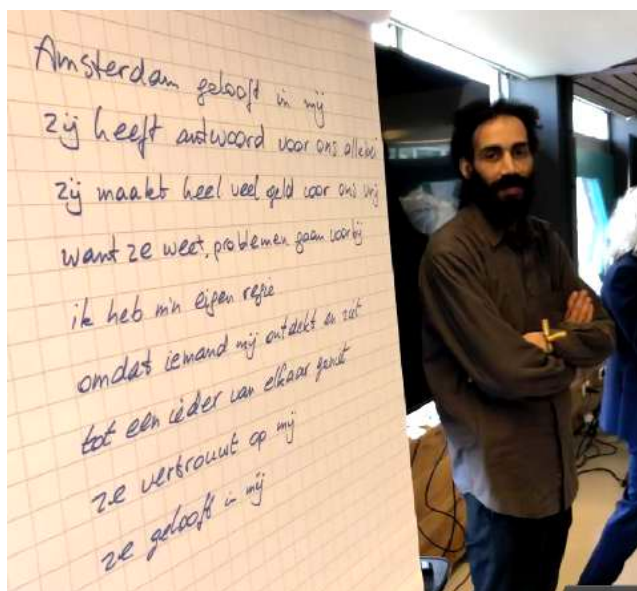 Amsterdam gelooft in mij
zij heeft antwoord voor ons allebei
zij maakt heel veel geld voor ons vrij
want ze weet, problemen gaan voorbij
ik heb m'n eigen regie
omdat iemand mij ontdekt en ziet
tot een ieder van elkaar geniet
ze vertrouwt op mij
ze gelooft in mij